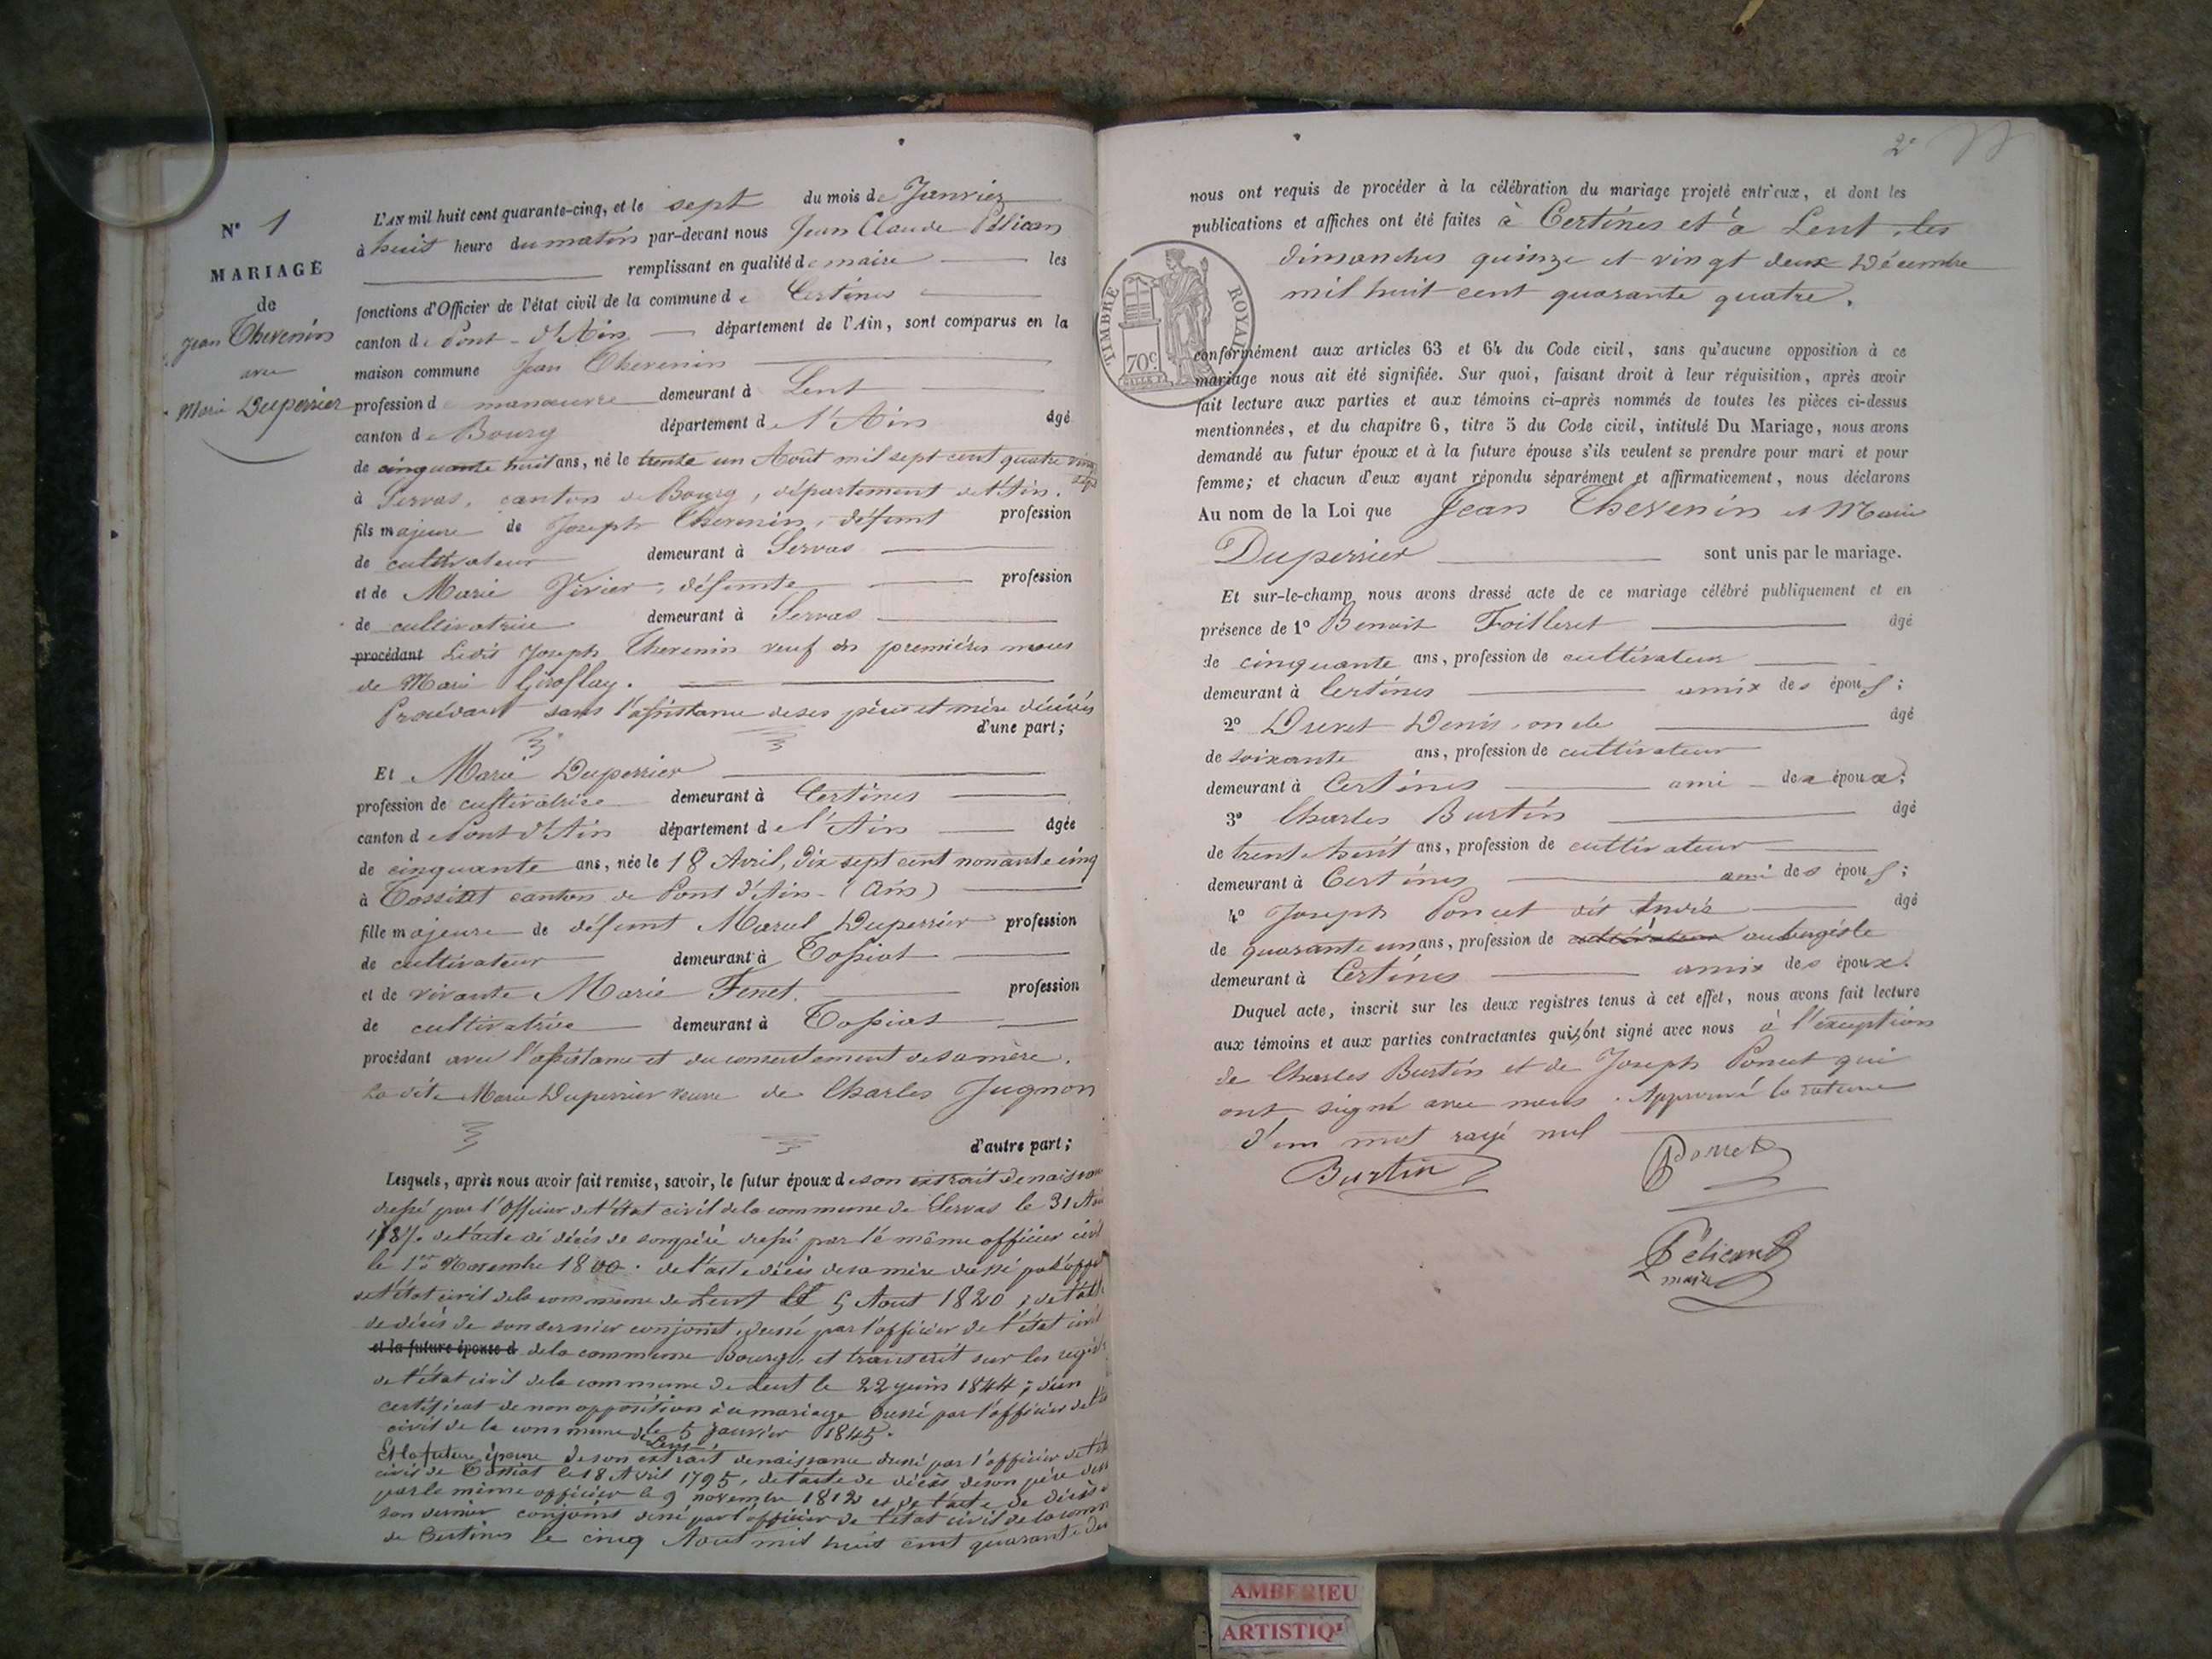 N° 1
MARIAGE
de
Jean Thevenin
avec
Marie Duperrier
L'AN mil huit cent quarante-cinq, et le sept du mois de Janvier
à huit heure du matin par-devant nous Jean Claude Pélican
remplissant en qualité de maire les
fonctions d'Officier de l'état civil de la commune de Certines
canton de Pont-d'Ain département de l'Ain, sont comparus en la
maison commune Jean Thevenin
profession de manœuvre demeurant à Lent
canton de Bourg département de l'Ain âgé
de cinquante huit ans, né le trente un Août mil sept cent quatre vingt sept
à Servas, canton de Bourg, département de l'Ain.
fils majeure de Joseph Thevenin, défunt profession
de cultivateur demeurant à Servas
et de Marie Vivier, défunte profession
de cultivatrice demeurant à Servas
procédant Ledit Joseph Thevenin veuf en premières noces
de Marie Giroflay.
Procédant sans l'assistance de ses père et mère décédés
d'une part;
Et Marie Duperrier
profession de cultivatrice demeurant à Certines
canton de Pont d'Ain département de l'Ain âgée
de cinquante ans, née le 18 Avril, dix sept cent nonante cinq
à Tossiat canton de Pont d'Ain (Ain)
fille majeure de défunt Marcel Duperrier profession
de cultivateur demeurant à Tossiat
et de vivante Marie Fenet. profession
de cultivatrice demeurant à Tossiat
procédant avec l'assistance et du consentement de sa mère.
La dite Marie Duperrier veuve de Charles Jugnon
d'autre part;
Lesquels, après nous avoir fait remise, savoir, le futur époux de son extrait de naissance
dressé par l'Officier de l'état civil de la commune de Servas le 31 Août
1787. de l'acte de décès de son père dressé par le même officier civil
le 1er Novembre 1800. de l'acte décès de sa mère dressé par l'offi
de l'état civil de la commune de Lent le 5 Aout 1820; de l'acte
de décès de son dernier conjoint, dressé par l'officier de l'état civil
et la future épouse d de la commune Bourg, et transcrit sur les regis
de l'état civil de la commune de Lent le 22 juin 1844; d'un
certificat de non opposition au mariage dressé par l'officier de l'ét
civil de la commune de Lent le 5 Janvier 1845.
Et la future épouse de son extrait de naissance dressé par l'officier de l'ét
civil de Tossiat le 18 Avril 1795, de l'acte de décès de son père
par le même officier le 9 novembre 1812 et de l'acte de décès
son dernier conjoint dressé par l'officier de l'état civil de la comm
de Certines le cinq Aout mil huit cent quarante
2e
nous ont requis de procéder à la célébration du mariage projeté entr'eux, et dont les
publications et affiches ont été faites à Certines et à Lent, les
dimanches quinze et vingt deux Décembre
mil huit cent quarante quatre.
TIMBRE ROYAL
70c.
conformément aux articles 63 et 64 du Code civil, sans qu'aucune opposition à ce
mariage nous ait été signifiée. Sur quoi, faisant droit à leur réquisition, après avoir
fait lecture aux parties et aux témoins ci-après nommés de toutes les pièces ci-dessus
mentionnées, et du chapitre 6, titre 5 du Code civil, intitulé Du Mariage, nous avons
demandé au futur époux et à la future épouse s'ils veulent se prendre pour mari et pour
femme; et chacun d'eux ayant répondu séparément et affirmativement, nous déclarons
Au nom de la Loi que Jean Thevenin et Marie
Duperrier sont unis par le mariage.
Et sur-le-champ nous avons dressé acte de ce mariage célébré publiquement et en
présence de 1° Benoit Foilleret âgé
de cinquante ans, profession de cultivateur
demeurant à Certines amix des épou ;
2° Druet Denis, oncle âgé
de soixante ans, profession de cultivateur
demeurant à Certines ami des époux;
3° Charles Burtin âgé
de trent huit ans, profession de cultivateur
demeurant à Certines ami des épou ;
4° Joseph Poncet dit âgé
de quarante un ans, profession de cultivateur aubergiste
demeurant à Certines amix des époux.
Duquel acte, inscrit sur les deux registres tenus à cet effet, nous avons fait lecture
aux témoins et aux parties contractantes qui ont signé avec nous à l'exception
de Charles Burtin et de Joseph Poncet qui
ont signé avec nous. Approuvé la rature
d'un mot rayé nul
Burtin
Pelicand
maire
AMBERIEU
ARTISTIQ